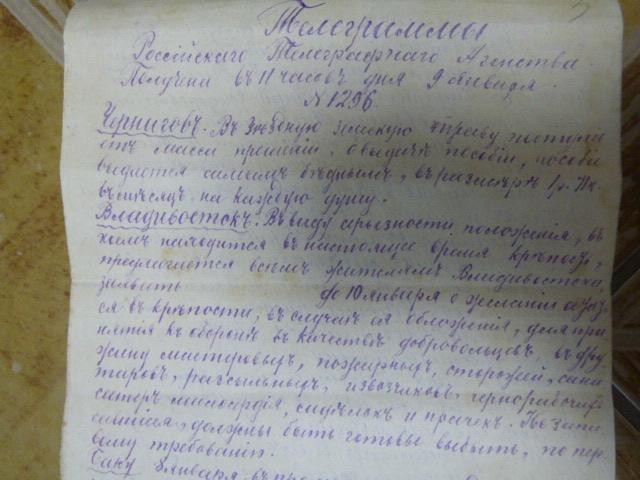 Телеграммы
Россійскаго Телеграфнаго Агенства.
Получена въ 11 часовъ дня 9 Января.
№ 1296.
Черниговъ. Въ уѣздную земскую управу поступи
отъ массы прошеній, о выдачѣ пособій, пособія
выдаются самымъ бѣднымъ, въ размѣрѣ 1 р.
въ мѣсяцъ на каждую душу.
Владивостокъ. Въ виду серьезности положенія, въ
коемъ находится въ настоящее время крѣпость,
предлагается всѣмъ жителямъ Владивостока,
заявить до 10 января о желаніи остат
ся въ крѣпости, въ случаѣ ея обложенія, для при
нятія къ оборонѣ въ качествѣ добровольцевъ, въ дру
жину мастеровыхъ, пожарныхъ, сторожей, сани
таровъ, разсыльныхъ, извозчиковъ, чернорабочихъ
сестеръ милосердія, сидѣлокъ и прачекъ. Не запи
савшіеся, должны быть готовы выбыть, по пер
вому требованію.
Баку 8 января въ